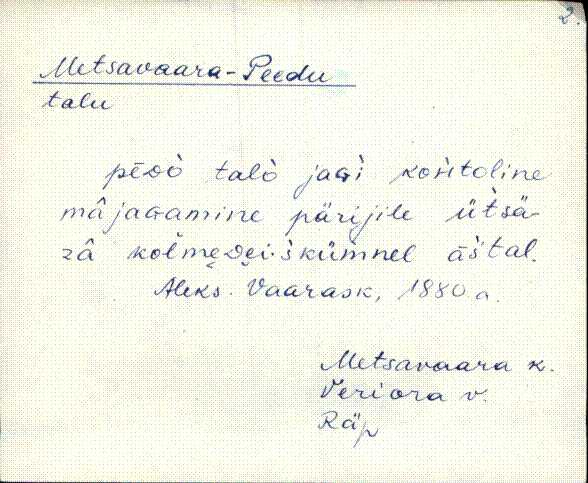 2.
Metsavaara-Peedu
talu
pēᴅò talò jaɢì kohtoline
mâjaɢamine pärijile ütsä-
zâ kolmeᴅei·škümnel āštal.
Aleks. Vaarask, 1880 a.
Metsavaara k.
Veriora v.
Räp